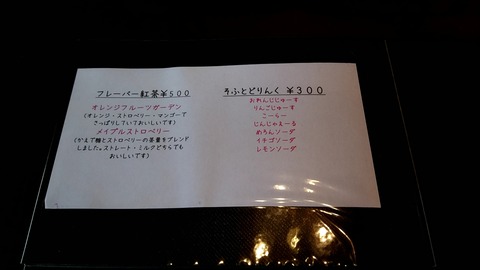 フレーバー紅茶¥500
オレンジフルーツガーデン
(オレンジ・ストロベリー・マンゴーで
さっぱりしていておいしいです)
メイプルストロベリー
(かえで糖とストロベリーの茶葉をブレンド
しました。ストレート・ミルクどちらでも
おいしいです)
そふとどりんく ¥300
おれんじじゅーす
りんごじゅーす
こーらー
じんじゃえーる
めろんソーダ
イチゴソーダ
レモンソーダ